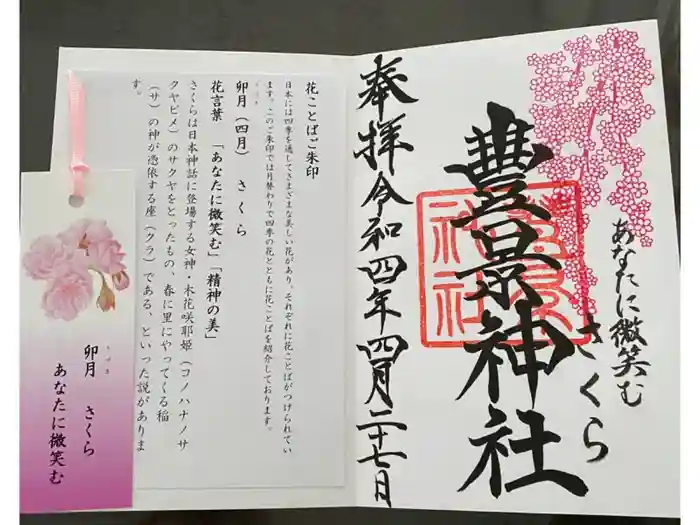 花ことばご朱印
日本には四季を通してさまざまな美しい花があり、それぞれに花ことばがつけられてい
ます。このご朱印では月替わりで四季の花とともに花ことばを紹介しております。
うづき
卯月(四月) さくら
花言葉 「あなたに微笑む」「精神の美」
さくらは日本神話に登場する女神・木花咲耶姫(コノハナノサ
クヤビメ)のサクヤをとったもの、春に里にやってくる稲
(サ)の神が憑依する座(クラ)である、といった説がありま
す。
うづき
卯月 さくら
あなたに微笑む
あなたに微笑む
さくら
豊景神社
奉拝令和四年四月二十七日